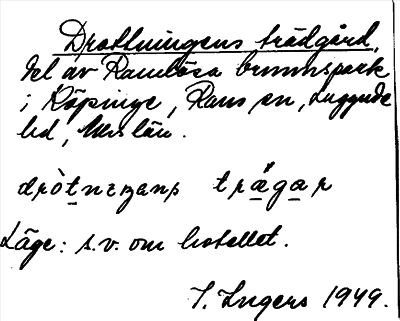 Drottningens trädgård,
del av Ramlösa brunnspark
i Köpinge, Raus sn, Luggude
hd, Mlm län.
drò̱tneŋans trǽ̱ga̱r
Läge: s.v. om hotellet.
I. Ingers 1949.